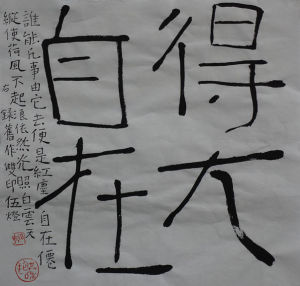 得大
自在
誰能凡事由它去便是紅塵自在僊
縱使荷風不起浪依然光照白雲天
右錄舊作雙印伍燈